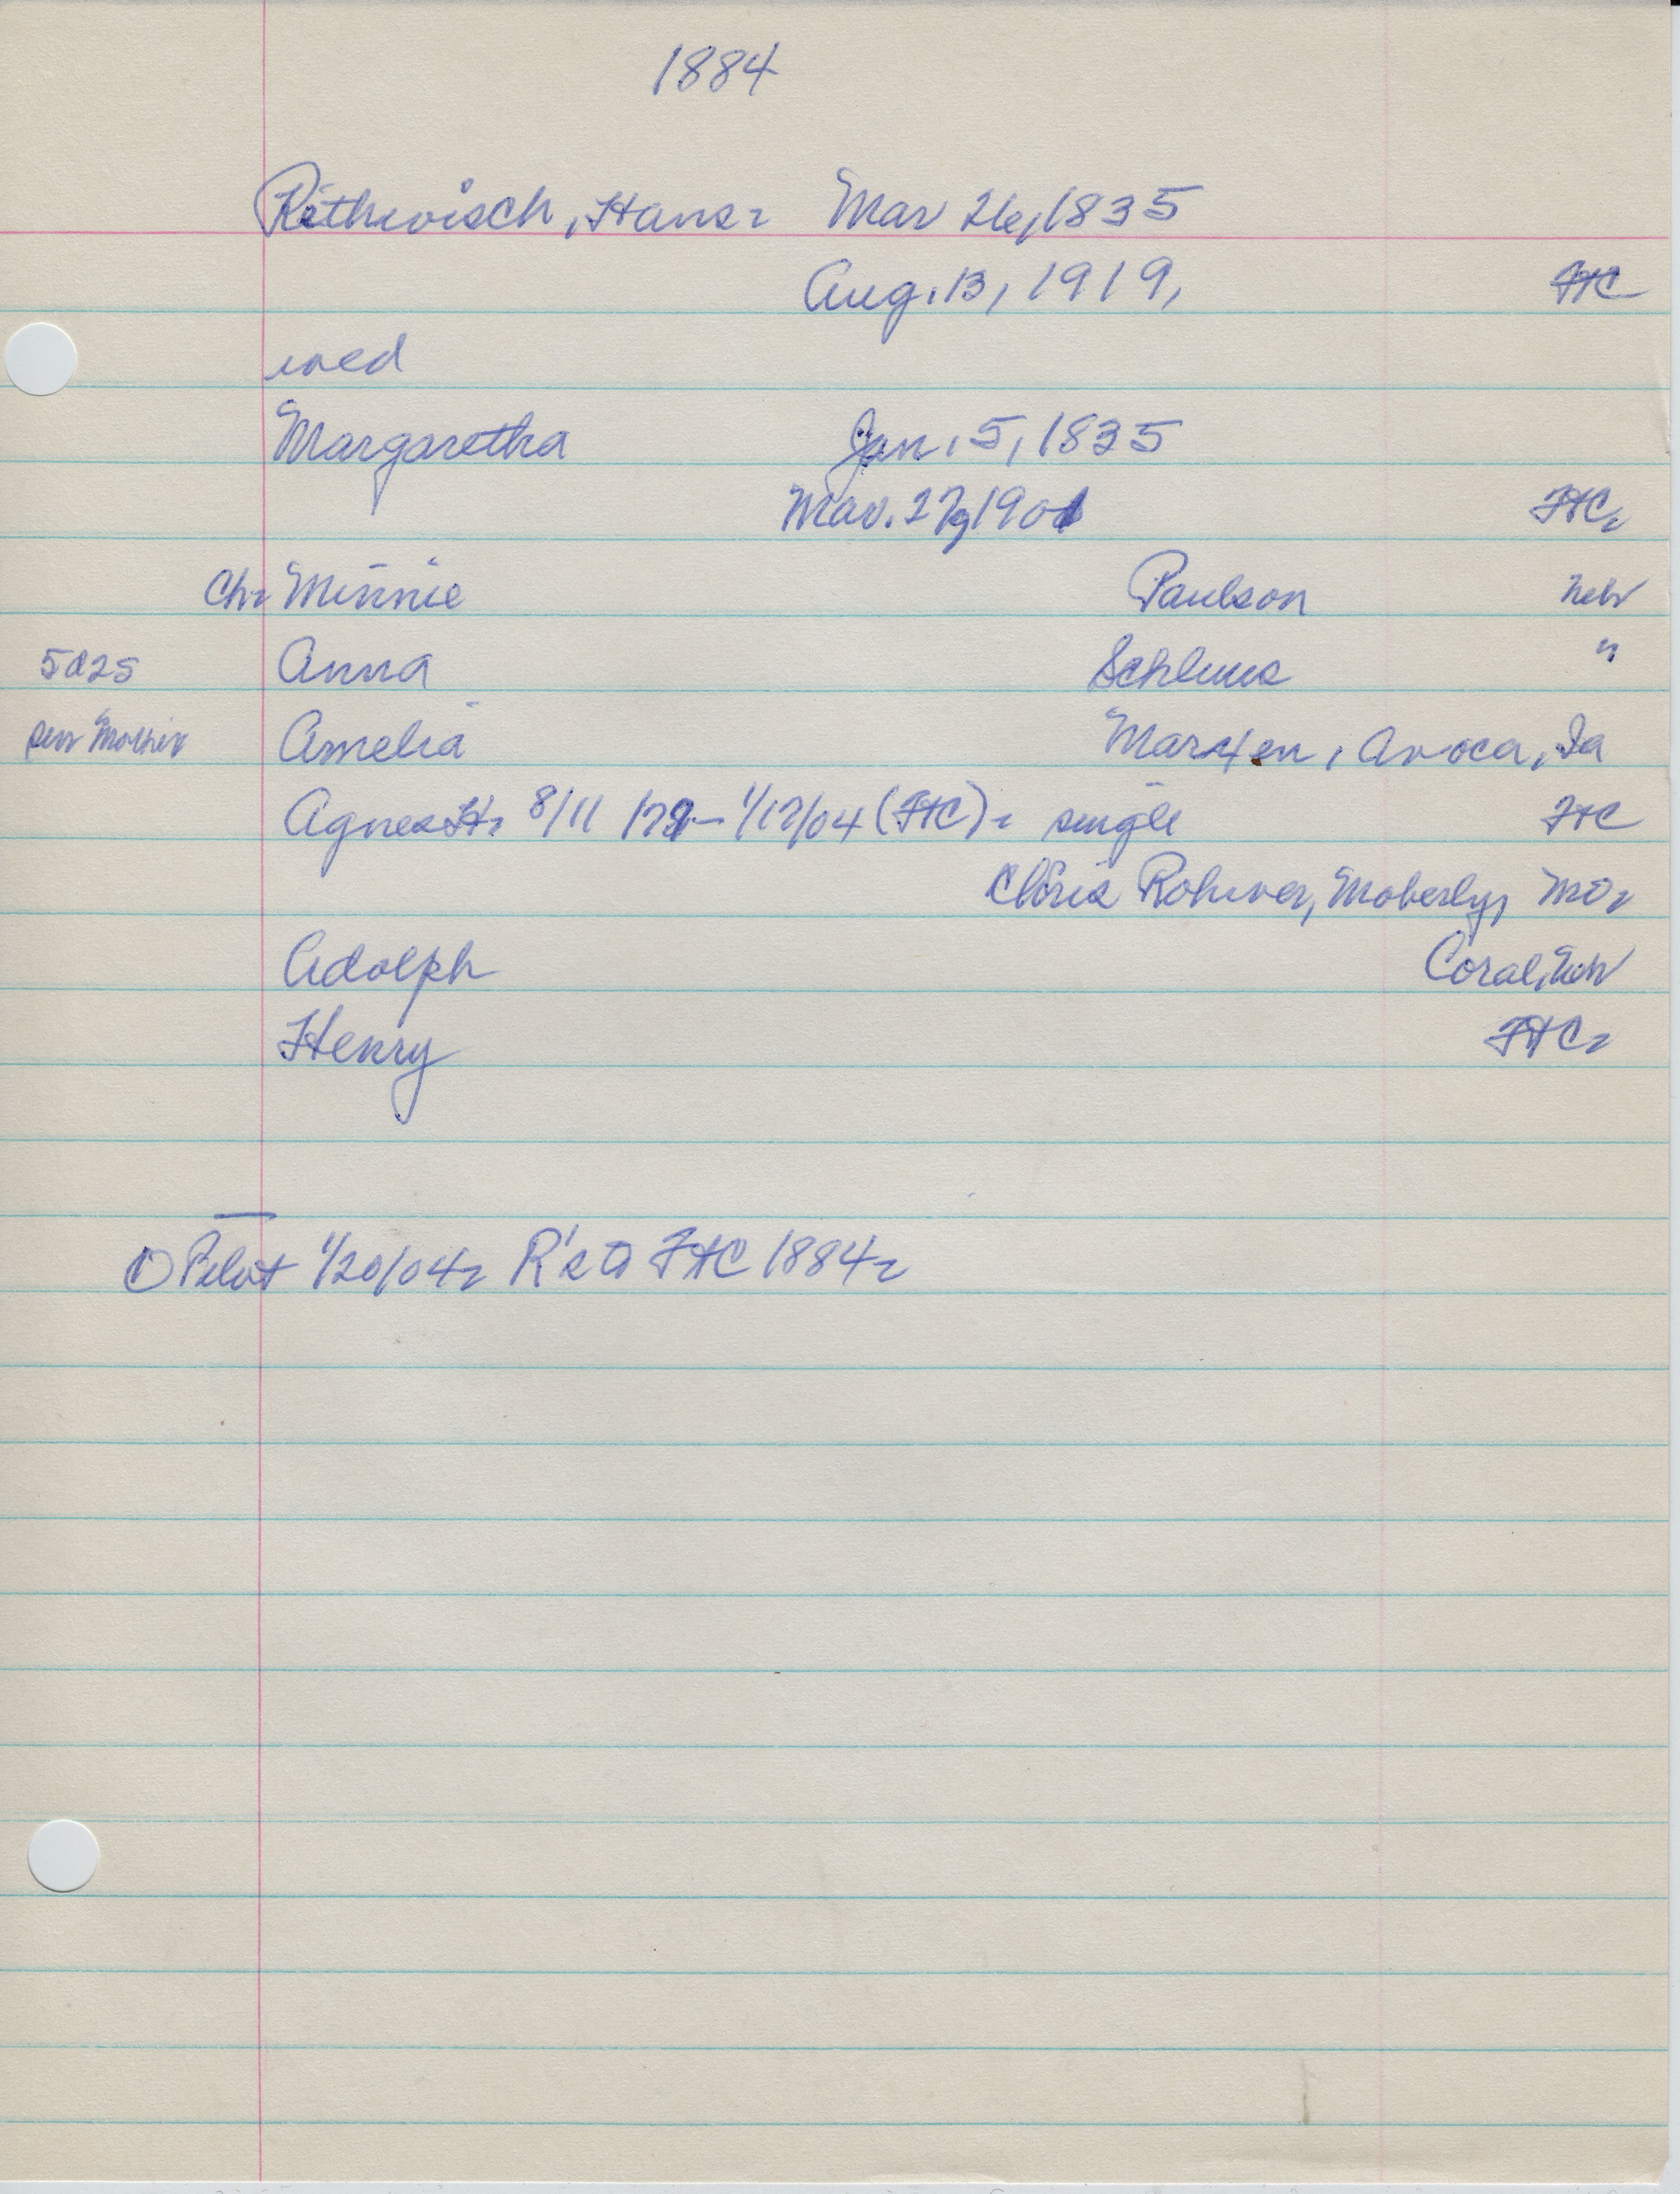 1884
Rethwisch, Hans- Mar 26, 1835
Aug. 13, 1919, FHC
wed
Margaretha Jan. 5, 1835
Mar. 27, 1901 FHC-
Ch- Minnie Paulson Neb
5d25 Anna Schlums "
Amelia Marxen, Avoca, Ia
Agnes H- 8/11 /79- 1/17/04 (FHC)- single FHC
Chris Rohwer, Moberly, Mo-
Adolph Coral, Neb
Henry FHC-
Pilot 1/20/04- R's FHC 1884-